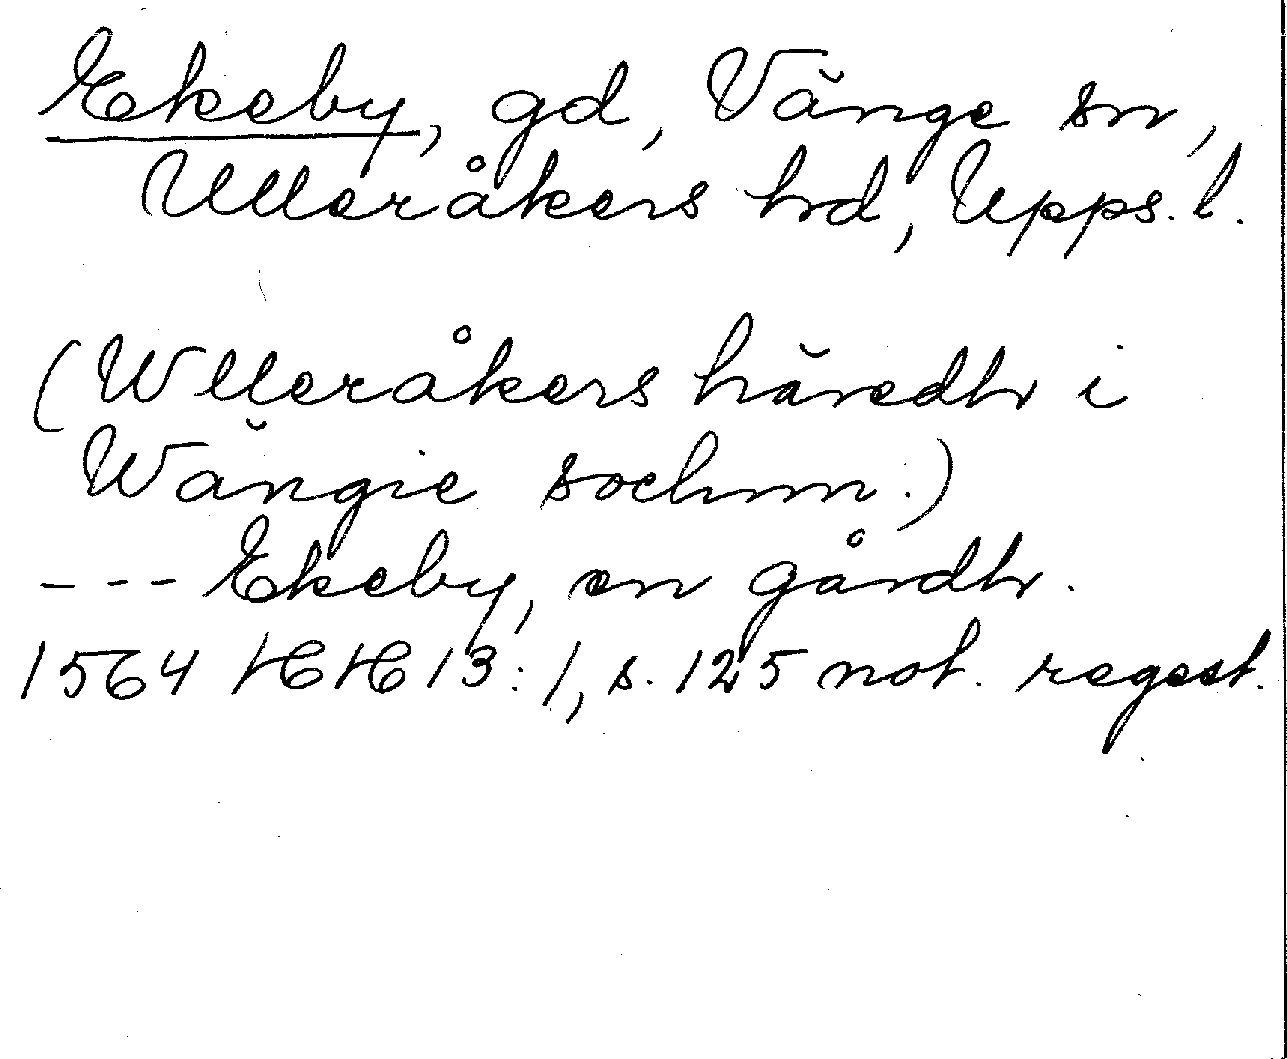 Ekeby, gd, Vänge sn,
Ulleråkers hd, Upps. l.
(Wlleråkers häredh i
Wängie sochnn.)
--- Ekeby, en gårdh.
1564 HH 13:1, s. 125 not. regest.